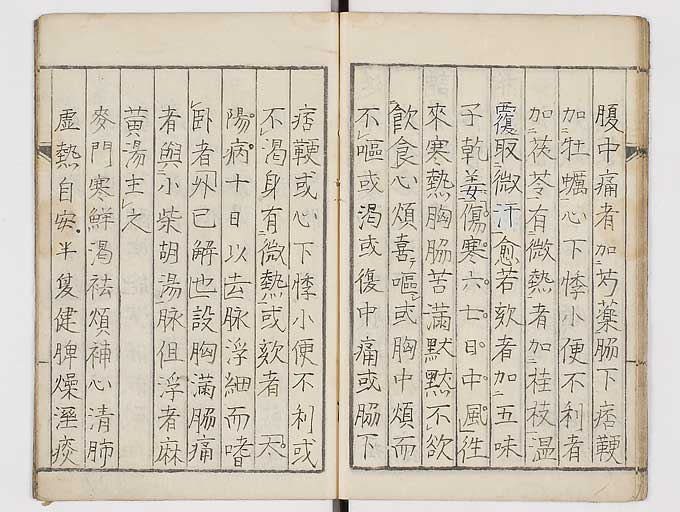 腹中痛者加芍藥脇下痞鞕
加牡蠣心下悸小便不利者
加茯苓有微熱者加桂枝温
覆取微汗愈若欬者加五味
子乾姜傷寒六七日中風徃
來寒熱胸脇苦滿默默不欲
飲食心煩喜嘔或胸中煩而
不嘔或渇或復中痛或脇下
痞鞕或心下悸小便不利或
不渇身有微熱或欬者太
陽病十日以去脉浮細而嗜
卧者外已解也設胸滿脇痛
者與小柴胡湯脉但浮者麻
黄湯主之
麥門寒鮮渇祛煩補心清肺
虚熱自安半夏健脾燥溼痰